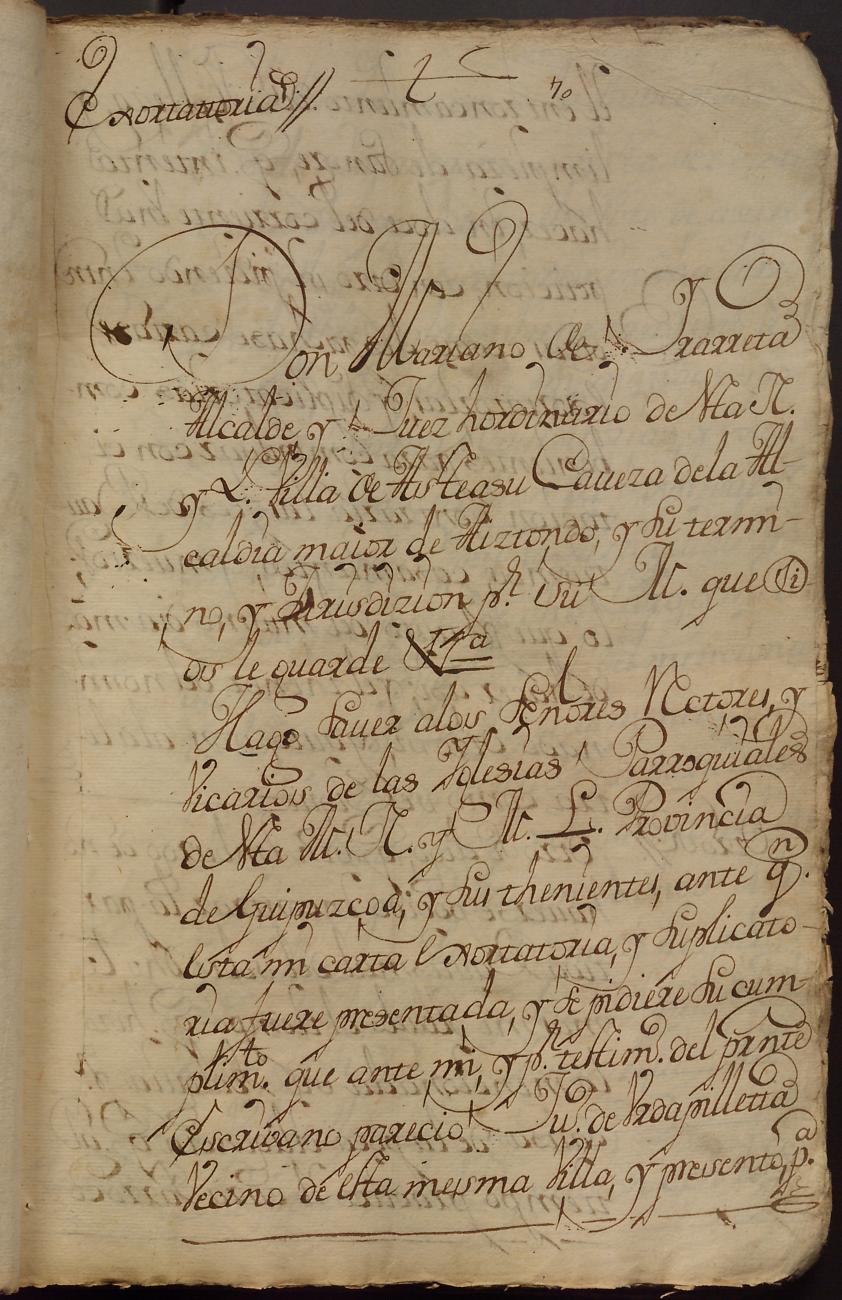 Exortattoria //.
40
Don Mariano de Yrarreta
Alcalde y Juez hordinario de esta N.
y L. Villa de Asteasu Caveza de la Al-
caldia maior de Aiztondo, y su termi-
no, y Jurisdizion pr. su M. que Di-
os le guarde &ra
Hago saver a los señores Rectores, y
Vicarios de las Yglesias Parroquiales
de esta M. N. y M. L. Provincia
de Guipuzcoa, y sus thenientes, ante qn.
esta mi carta exortatoria, y suplicato-
ria fuere presentada, y se pidiere su cum-
plimto. que ante mi, y pr. testimo. del prnte
Escribano parecio Ju. de Vrdapilletta
Vecino de esta mesma Villa, y presento, pa.